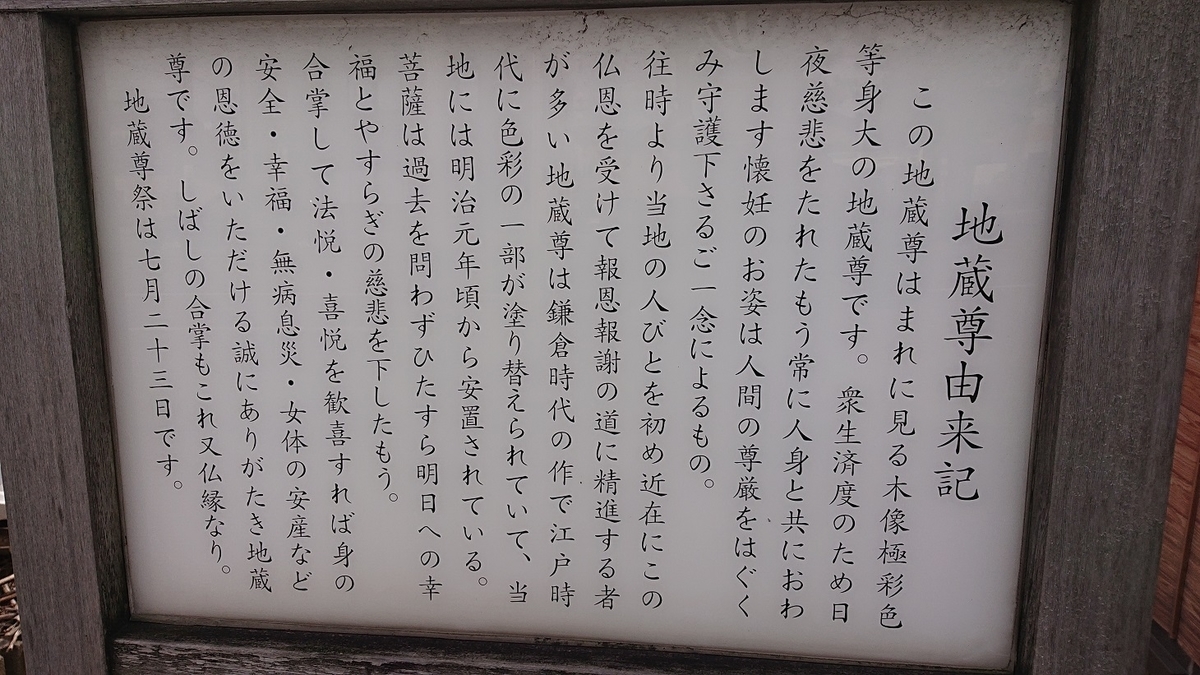 地蔵尊由来記
この地蔵尊はまれに見る木像極彩色
等身大の地蔵尊です。衆生済度のため日
夜慈悲をたれたもう常に人身と共におわ
します懐妊のお姿は人間の尊厳をはぐく
み守護下さるご一念によるもの。
往時より当地の人びとを初め近在にこの
仏恩を受けて報恩報謝の道に精進する者
が多い地蔵尊は鎌倉時代の作で江戸時
代に色彩の一部が塗り替えられていて、当
地には明治元年頃から安置されている。
菩薩は過去を問わずひたすら明日への幸
福とやすらぎの慈悲を下したもう。
合掌して法悦・喜悦を歓喜すれば身の
安全・幸福・無病息災・女体の安産など
の恩徳をいただける誠にありがたき地蔵
尊です。しばしの合掌もこれ又仏縁なり。
地蔵尊祭は七月二十三日です。